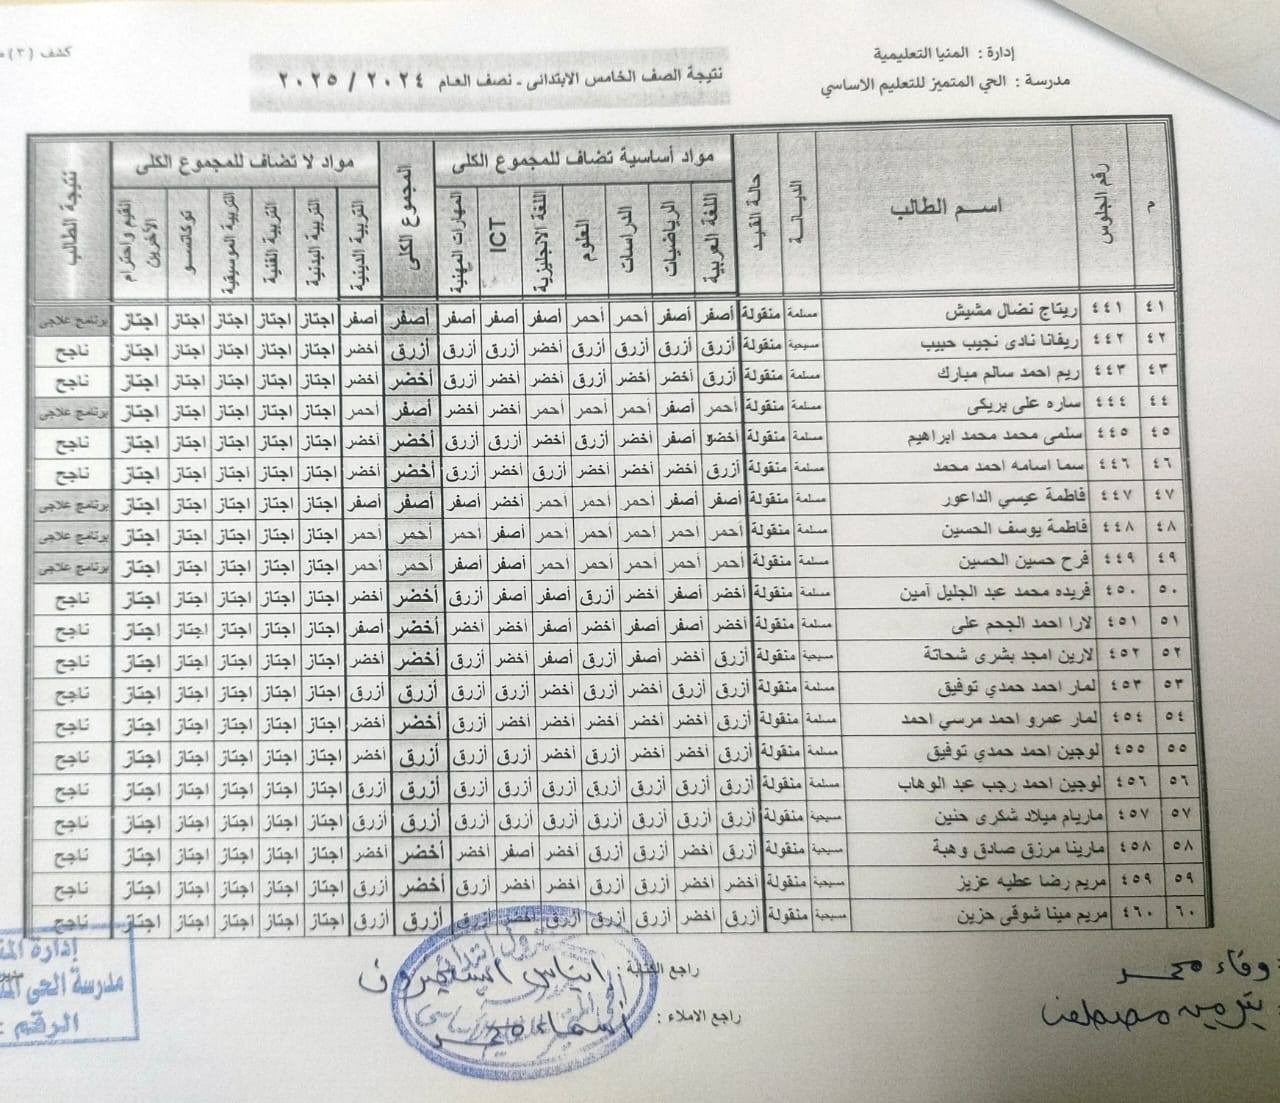 إدارة : المنيا التعليمية
مدرسة : الحي المتميز للتعليم الاساسي
نتيجة الصف الخامس الابتدائى - نصف العام ٢٠٢٤ / ٢٠٢٥
كشف (٣)
م رقم الجلوس اسم الطالب الديانة حالة القيد مواد أساسية تضاف للمجموع الكلى المجموع الكلى مواد لا تضاف للمجموع الكلى نتيجة الطالب
اللغة العربية الرياضيات الدراسات العلوم اللغة الانجليزية ICT المهارات المهنية التربية الدينية التربية البدنية التربية الفنية التربية الموسيقية توكاتسو القيم واحترام الآخرين
٤١ ٤٤١ ريتاج نضال مشيش مسلمة منقولة أصفر أصفر أحمر أحمر أصفر أصفر أصفر أصفر أصفر اجتاز اجتاز اجتاز اجتاز اجتاز برنامج علاجى
٤٢ ٤٤٢ ريفانا نادى نجيب حبيب مسيحية منقولة أزرق أزرق أزرق أزرق أخضر أزرق أزرق أزرق أخضر اجتاز اجتاز اجتاز اجتاز اجتاز ناجح
٤٣ ٤٤٣ ريم احمد سالم مبارك مسلمة منقولة أزرق أخضر أخضر أزرق أخضر أخضر أزرق أخضر أخضر اجتاز اجتاز اجتاز اجتاز اجتاز ناجح
٤٤ ٤٤٤ ساره على بريكى مسلمة منقولة أحمر أصفر أحمر أحمر أحمر أخضر أخضر أصفر أحمر اجتاز اجتاز اجتاز اجتاز اجتاز برنامج علاجى
٤٥ ٤٤٥ سلمى محمد محمد ابراهيم مسلمة منقولة أخضر أصفر أخضر أزرق أخضر أزرق أزرق أخضر أخضر اجتاز اجتاز اجتاز اجتاز اجتاز ناجح
٤٦ ٤٤٦ سما اسامه احمد محمد مسلمة منقولة أزرق أخضر أخضر أخضر أزرق أخضر أزرق أخضر أخضر اجتاز اجتاز اجتاز اجتاز اجتاز ناجح
٤٧ ٤٤٧ فاطمة عيسي الداعور مسلمة منقولة أصفر أصفر أحمر أحمر أحمر أخضر أصفر أصفر أصفر اجتاز اجتاز اجتاز اجتاز اجتاز برنامج علاجى
٤٨ ٤٤٨ فاطمة يوسف الحسين مسلمة منقولة أحمر أحمر أحمر أحمر أحمر أصفر أحمر أحمر أحمر اجتاز اجتاز اجتاز اجتاز اجتاز برنامج علاجى
٤٩ ٤٤٩ فرح حسين الحسين مسلمة منقولة أحمر أحمر أحمر أحمر أحمر أصفر أصفر أحمر أحمر اجتاز اجتاز اجتاز اجتاز اجتاز برنامج علاجى
٥٠ ٤٥٠ فريده محمد عبد الجليل آمين مسلمة منقولة أخضر أصفر أخضر أزرق أصفر أصفر أزرق أخضر أخضر اجتاز اجتاز اجتاز اجتاز اجتاز ناجح
٥١ ٤٥١ لارا احمد الجحم على مسلمة منقولة أخضر أصفر أصفر أخضر أصفر أخضر أخضر أخضر أصفر اجتاز اجتاز اجتاز اجتاز اجتاز ناجح
٥٢ ٤٥٢ لارين امجد بشرى شحاتة مسيحية منقولة أزرق أخضر أصفر أزرق أصفر أخضر أزرق أخضر أخضر اجتاز اجتاز اجتاز اجتاز اجتاز ناجح
٥٣ ٤٥٣ لمار احمد حمدي توفيق مسلمة منقولة أزرق أزرق أخضر أزرق أخضر أزرق أزرق أزرق أزرق اجتاز اجتاز اجتاز اجتاز اجتاز ناجح
٥٤ ٤٥٤ لمار عمرو احمد مرسي احمد مسلمة منقولة أزرق أخضر أخضر أخضر أخضر أخضر أزرق أخضر أخضر اجتاز اجتاز اجتاز اجتاز اجتاز ناجح
٥٥ ٤٥٥ لوجين احمد حمدي توفيق مسلمة منقولة أزرق أخضر أخضر أزرق أخضر أزرق أزرق أزرق أخضر اجتاز اجتاز اجتاز اجتاز اجتاز ناجح
٥٦ ٤٥٦ لوجين احمد رجب عبد الوهاب مسلمة منقولة أزرق أزرق أزرق أزرق أزرق أزرق أزرق أزرق أزرق اجتاز اجتاز اجتاز اجتاز اجتاز ناجح
٥٧ ٤٥٧ ماريام ميلاد شكرى حنين مسيحية منقولة أزرق أزرق أزرق أزرق أزرق أزرق أزرق أزرق أزرق اجتاز اجتاز اجتاز اجتاز اجتاز ناجح
٥٨ ٤٥٨ مارينا مرزق صادق وهبة مسيحية منقولة أزرق أخضر أزرق أزرق أخضر أصفر أخضر أخضر أخضر اجتاز اجتاز اجتاز اجتاز اجتاز ناجح
٥٩ ٤٥٩ مريم رضا عطيه عزيز مسيحية منقولة أخضر أخضر أزرق أزرق أخضر أخضر أزرق أخضر أزرق اجتاز اجتاز اجتاز اجتاز اجتاز ناجح
٦٠ ٤٦٠ مريم مينا شوقى حزين مسيحية منقولة أزرق أخضر أزرق أزرق أزرق أخضر أزرق أزرق أزرق اجتاز اجتاز اجتاز اجتاز اجتاز ناجح
وفاء محمد
مصطفى
راجع الكتابة : ايناس
راجع الاملاء : أسماء محمد
إدارة
مدرسة الحى
الرقم :